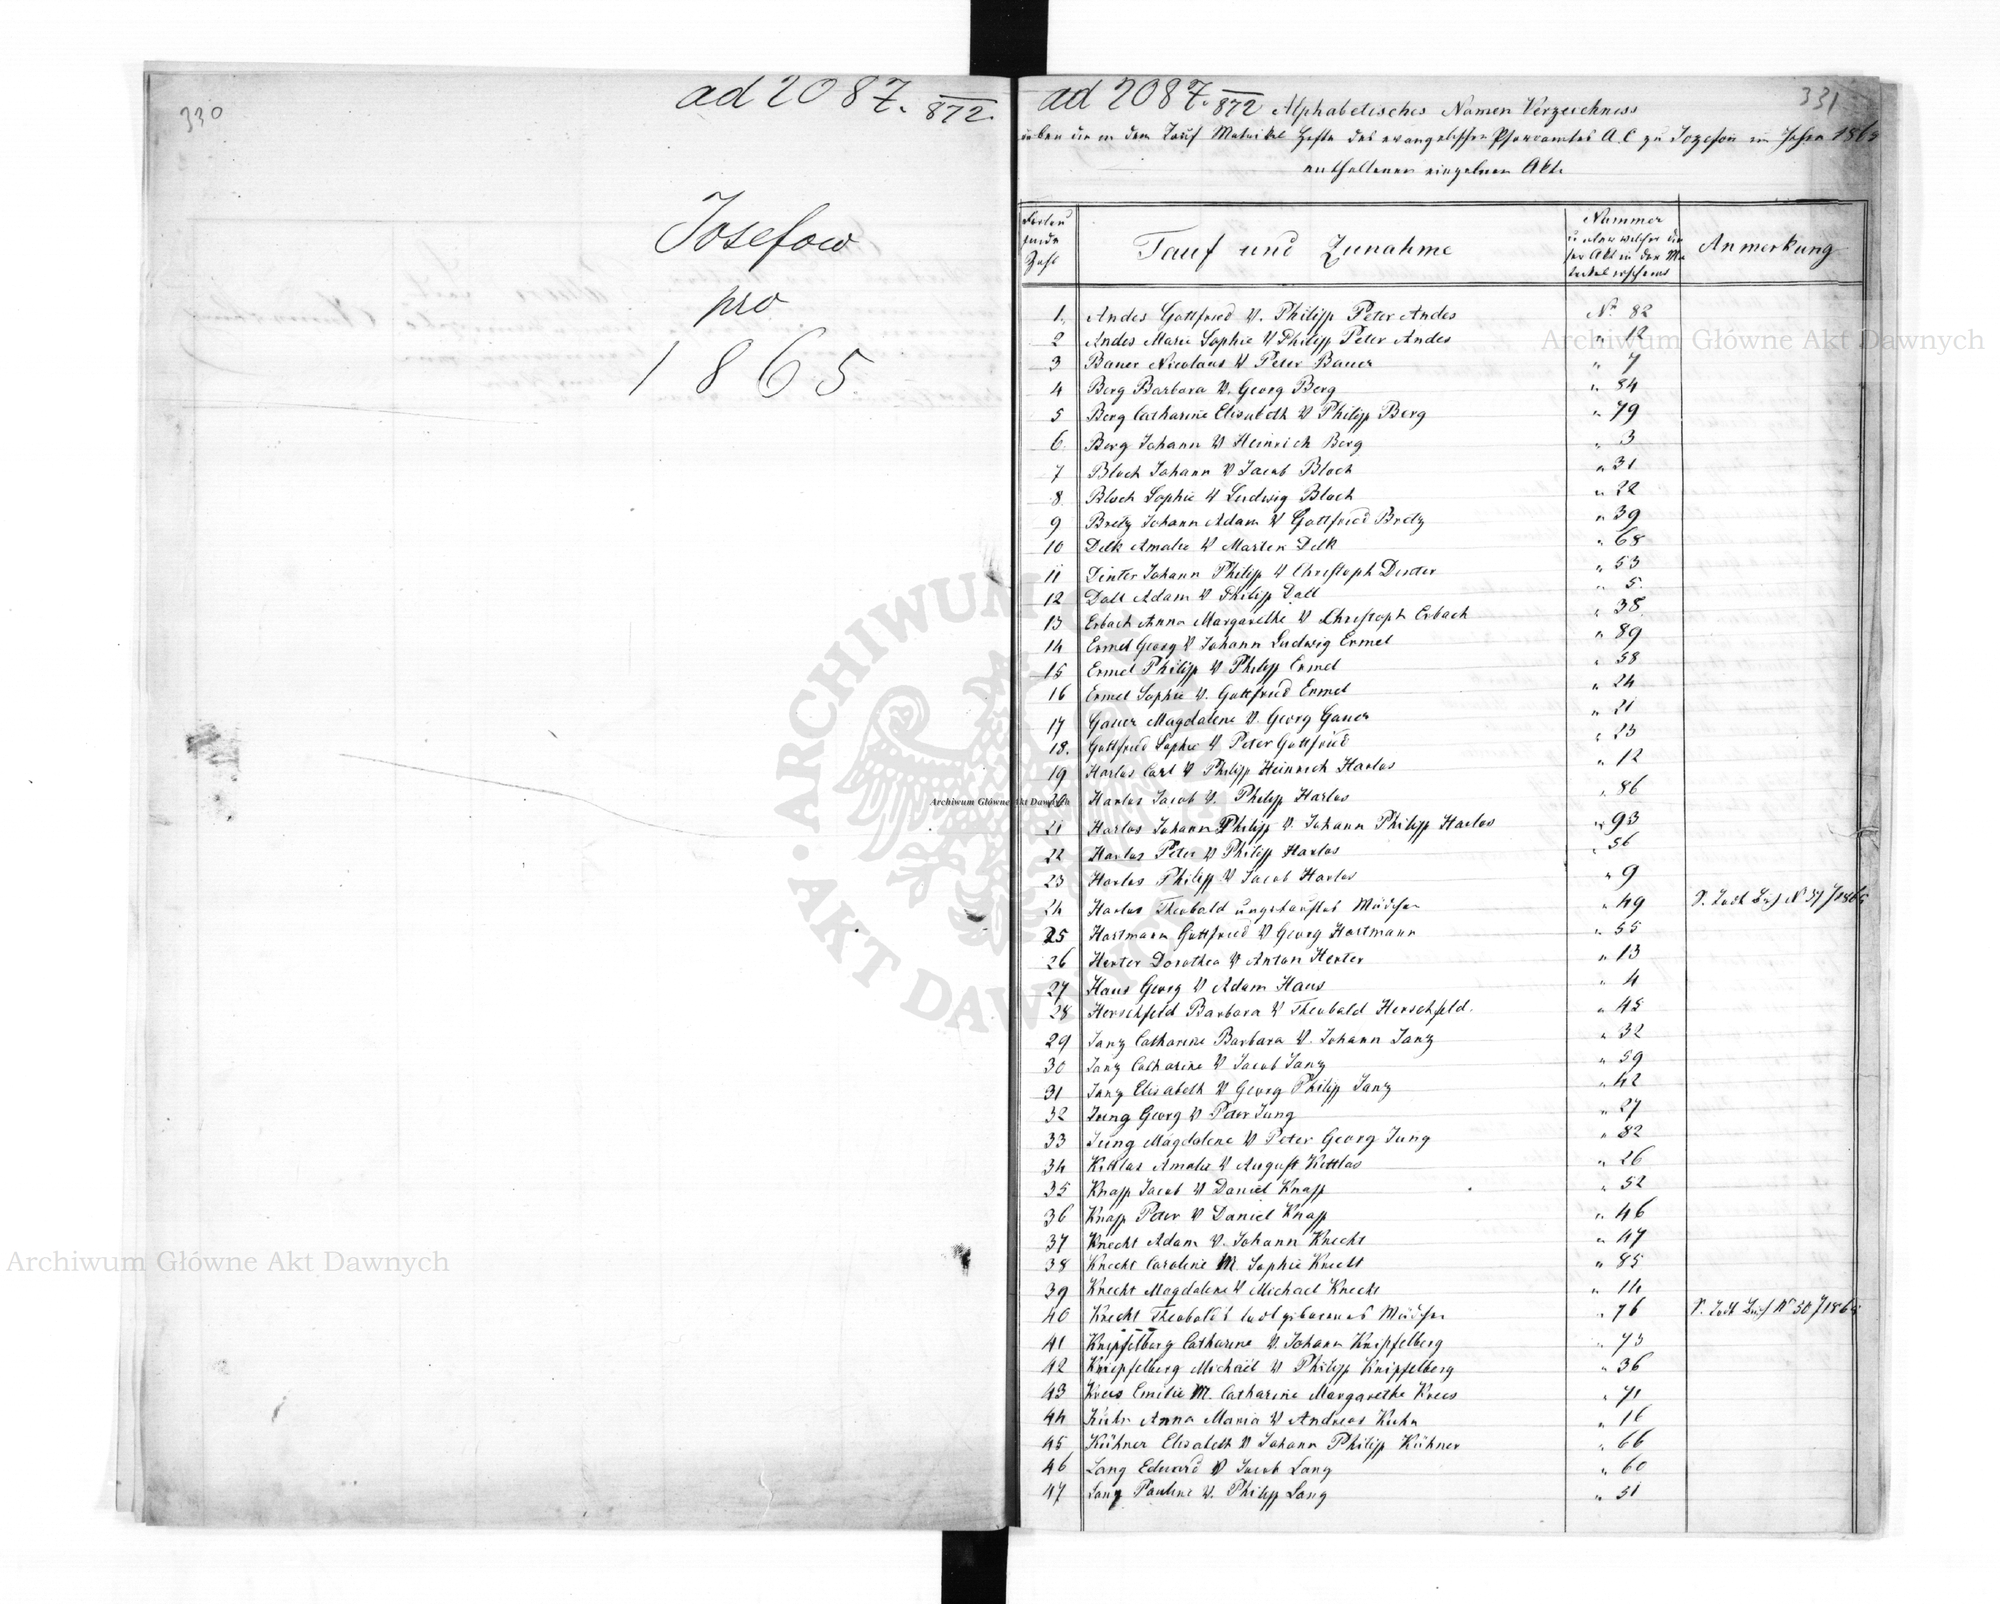 330
ad 2087. 872.
Josefow
pro
1865.
ad 2087. 872 Alphabetisches Namen Verzeichniss 331
über die in dem Tauf Matrikel Hefte des evangelischen Pfarramtes A. C zu Jozefow im Jahre 1865
enthaltenen einzelnen Akte
Fortlau
fende
Zahl
Tauf und Zunahme
Nummer
unter welcher die
ser Akt in der Ma
trikel erscheint
Anmerkung
1. Andes Gottfried V. Philipp Peter Andes No 82
2 Andes Marie Sophie V Philipp Peter Andes " 12
3 Bauer Nicolaus V Peter Bauer " 7
4 Berg Barbara V. Georg Berg " 84
5 Berg Catharine Elisabeth V Philipp Berg " 79
6. Berg Johann V Heinrich Berg " 3
7 Bloch Johann V Jacob Bloch " 31
8. Bloch Sophie V Ludwig Bloch " 22
9 Bretz Johann Adam V Gottfried Bretz " 39
10 Delk Amalie V Martin Delk " 68
11 Dinter Johann Philipp V Christoph Dinter " 53
12 Doll Adam V Philipp Doll " 5.
13 Erbach Anna Margarethe V Christoph Erbach " 38.
14 Ermel Georg V Johann Ludwig Ermel " 89
15 Ermel Philipp V Philipp Ermel " 58
16 Ermel Sophie V. Gottfried Ermel " 24
17 Gauer Magdalene V. Georg Gauer " 21
18. Gottfried Sophie V Peter Gottfried " 23
19 Harlos Carl V Philipp Heinrich Harlos " 12
20 Harlos Jacob V. Philipp Harlos " 86
21 Harlos Johann Philipp V. Johann Philipp Harlos " 93
22 Harlos Peter V Philipp Harlos " 56
23 Harlos Philipp V Jacob Harlos " 9
24 Harlos Theobald ungetauftes Mädchen " 49
25 Hartmann Gottfried V Georg Hartmann " 55
26 Herter Dorothea V Anton Herter " 13
27 Haus Georg V Adam Haus " 4
28 Herschfeld Barbara V Theobald Herschfeld. " 45
29 Janz Catharine Barbara V. Johann Janz " 32
30 Janz Catharine V Jacob Janz " 59
31 Janz Elisabeth V Georg Philipp Janz " 42
32 Jung Georg V Peter Jung " 27
33 Jung Magdalene V Peter Georg Jung " 82
34 Kittlas Amalie V August Kittlas " 26
35 Knapp Jacob V Daniel Knapp " 52
36 Knapp Peter V Daniel Knapp " 46
37 Knecht Adam V. Johann Knecht " 47
38 Knecht Caroline M. Sophie Knecht " 85
39 Knecht Magdalene V Michael Knecht " 14
40 Knecht Theobald's todtgeborenes Mädchen " 76
41 Knipfelberg Catharine V. Johann Knipfelberg " 73
42 Knipfelberg Michael V Philipp Knipfelberg " 36
43 Krees Emilie M. Catharine Margarethe Krees " 71
44 Kuhn Anna Maria V Andreas Kuhn " 16
45 Kühner Elisabeth V Johann Philipp Kühner " 66
46 Lang Eduard V Jacob Lang " 60
47 Lang Pauline V. Philipp Lang " 51
Archiwum Główne Akt Dawnych
Archiwum Główne Akt Dawnych
Archiwum Główne Akt Dawnych